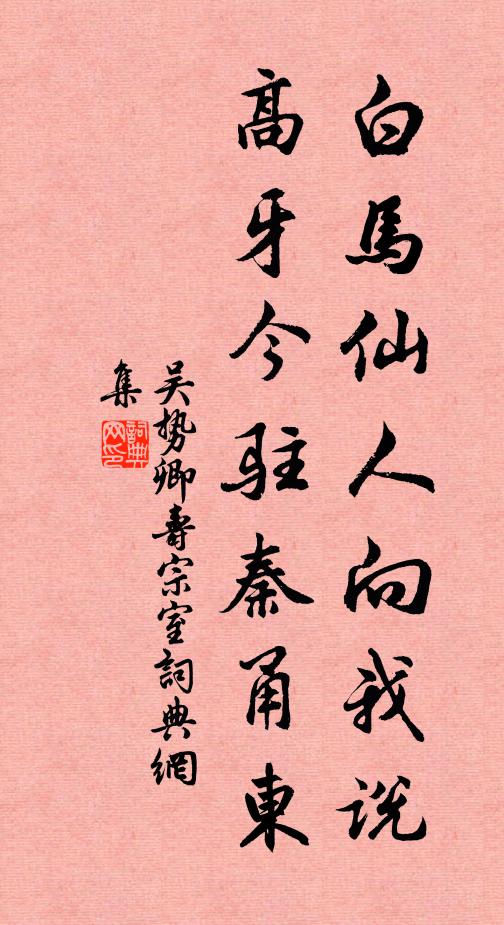 白馬仙人向我説
高牙今駐秦甬東
吴势卿壽宗室詞典網
集
詞典
网印